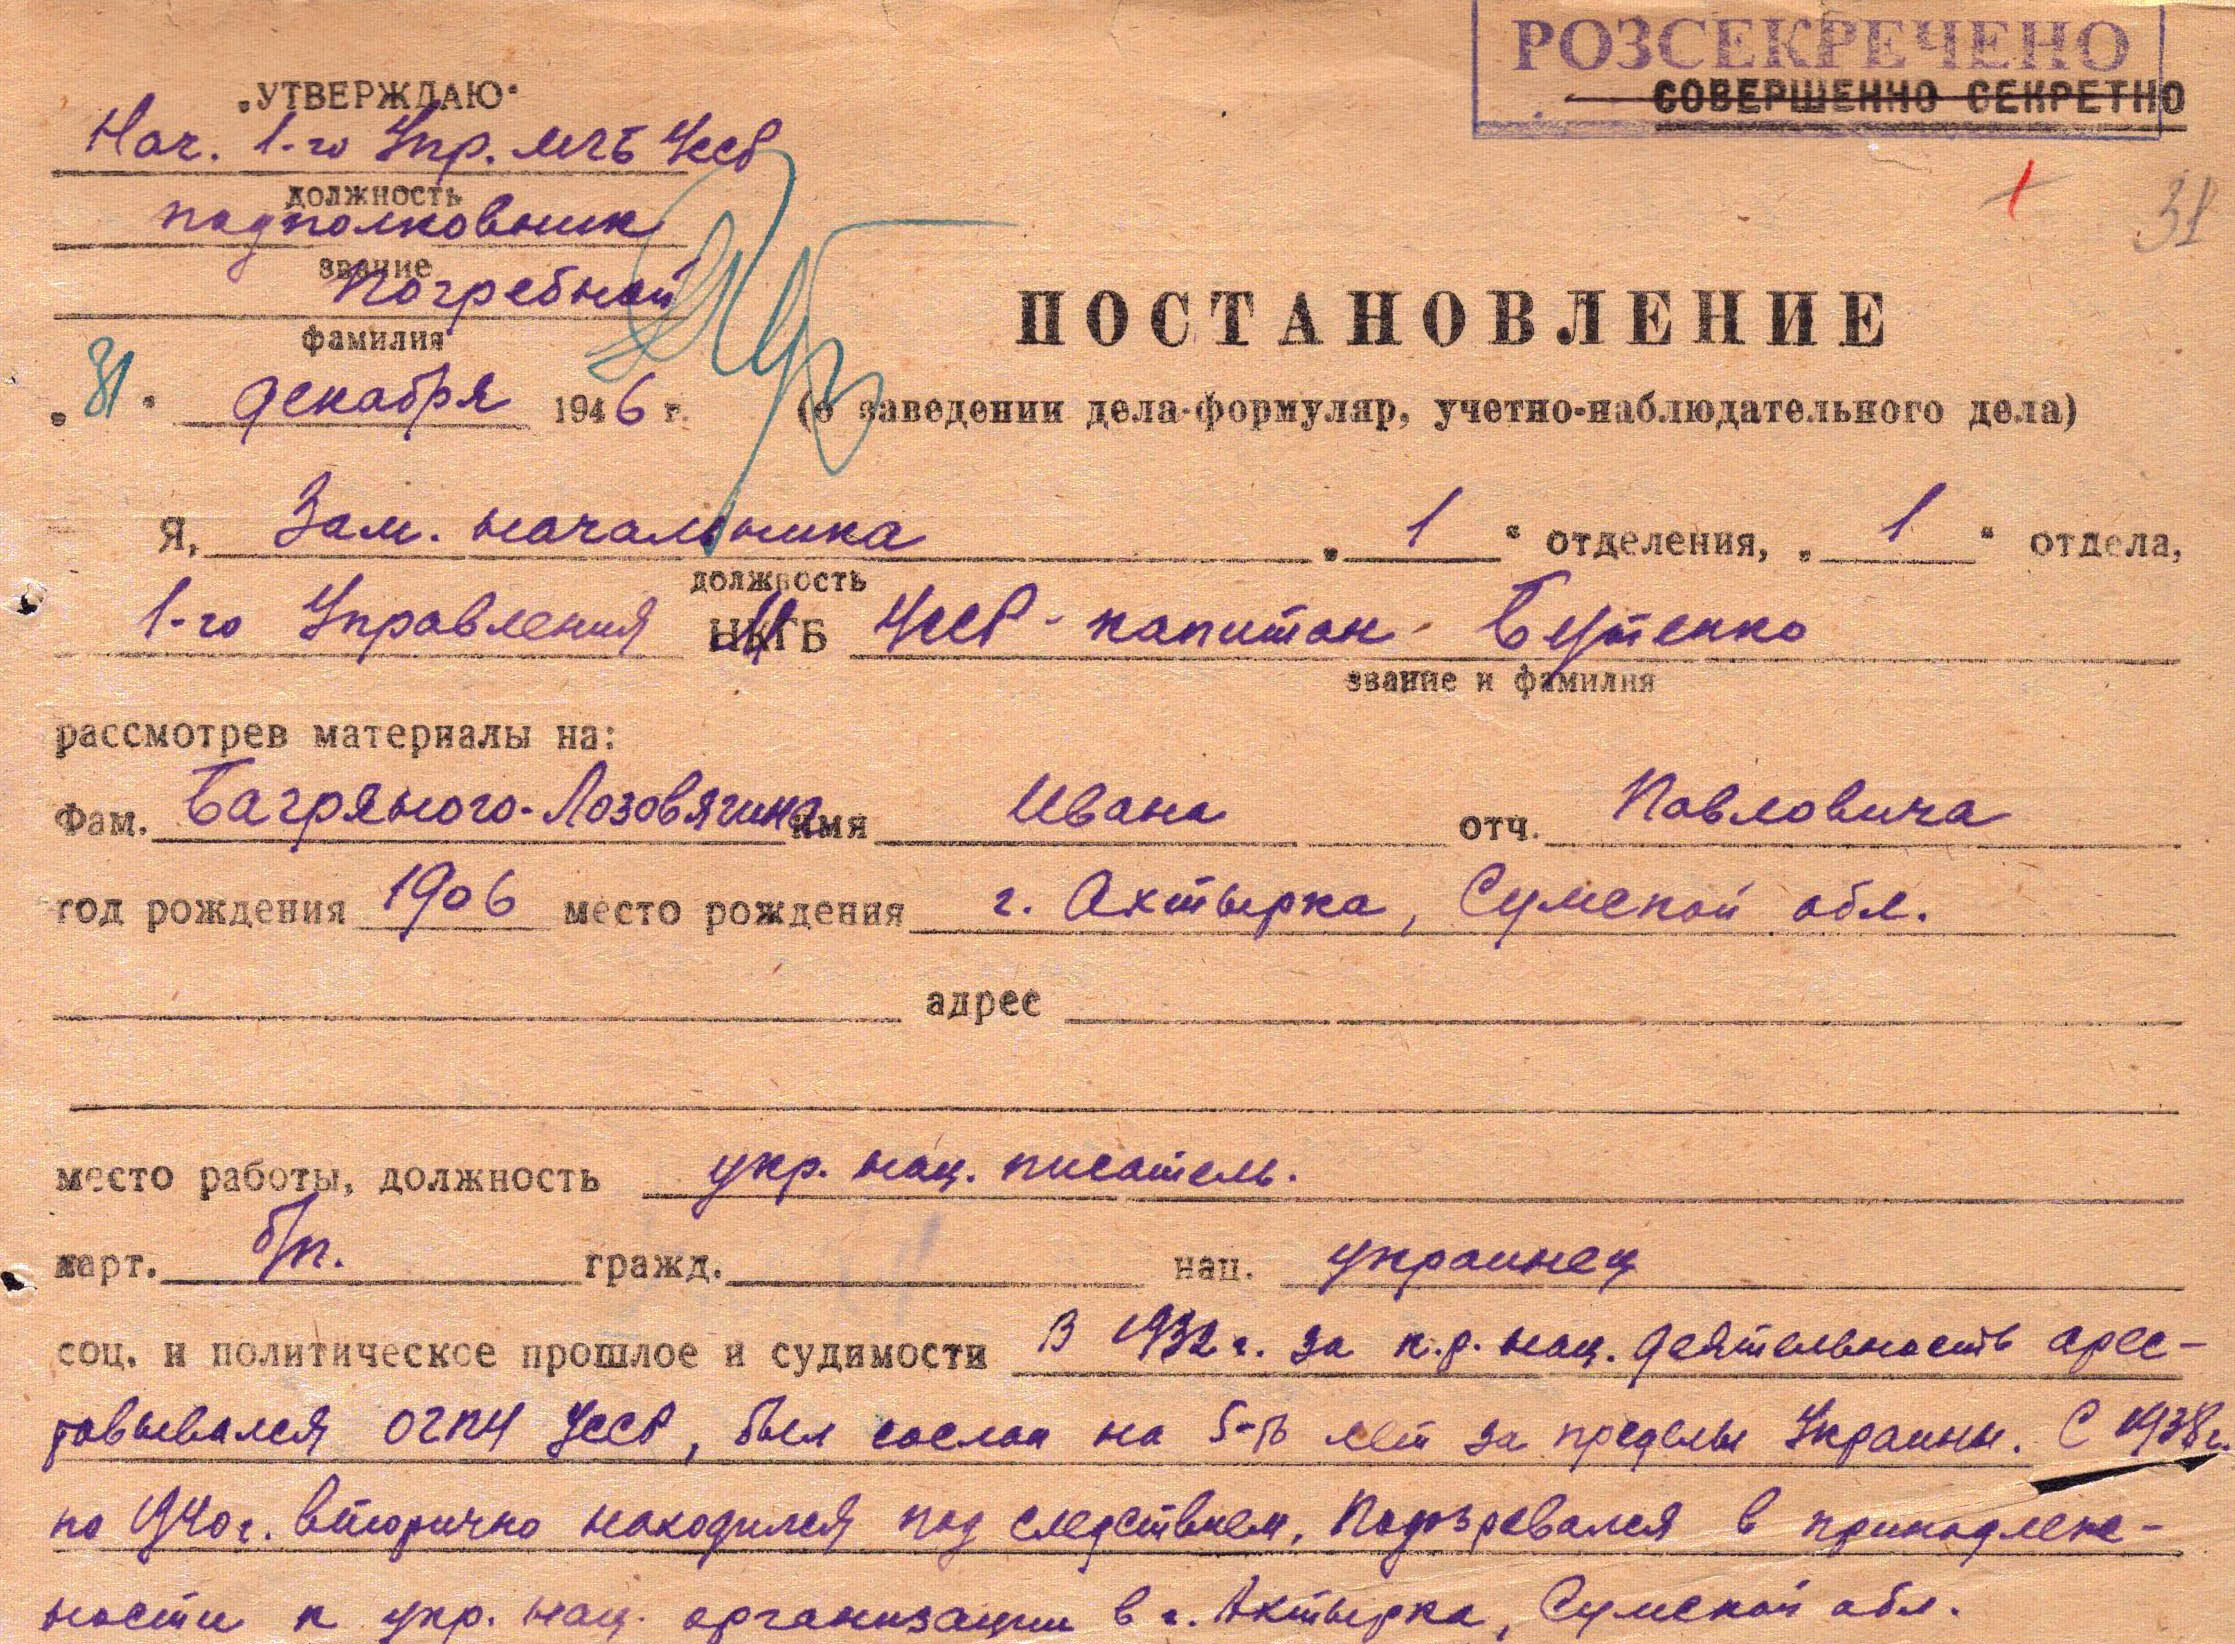 РОЗСЕКРЕЧЕНО
СОВЕРШЕННО СЕКРЕТНО
„УТВЕРЖДАЮ“
Нач. 1-го Упр. МГБ УССР
должность
подполковник
звание
Погребной
фамилия
31
„31“ декабря 1946 г.
ПОСТАНОВЛЕНИЕ
(о заведении дела-формуляр, учетно-наблюдательного дела)
Я, Зам. начальника „1“ отделения, „1“ отдела,
должность
1-го Управления МГБ УССР - капитан - Бутенко
звание и фамилия
рассмотрев материалы на:
Фам. Багряного-Лозовягина имя Ивана отч. Павловича
год рождения 1906 место рождения г. Ахтырка, Сумской обл.
адрес
место работы, должность укр. нац. писатель.
парт. б/п. гражд. нац. украинец
соц. и политическое прошлое и судимости В 1932 г. за к.р. нац. деятельность арес-
товывался ОГПУ УССР, был сослан на 5-ть лет за пределы Украины. С 1938 г.
по 1940 г. вторично находился под следствием. Подозревался в принадлеж-
ности к укр. нац. организации в г. Ахтырка, Сумской обл.